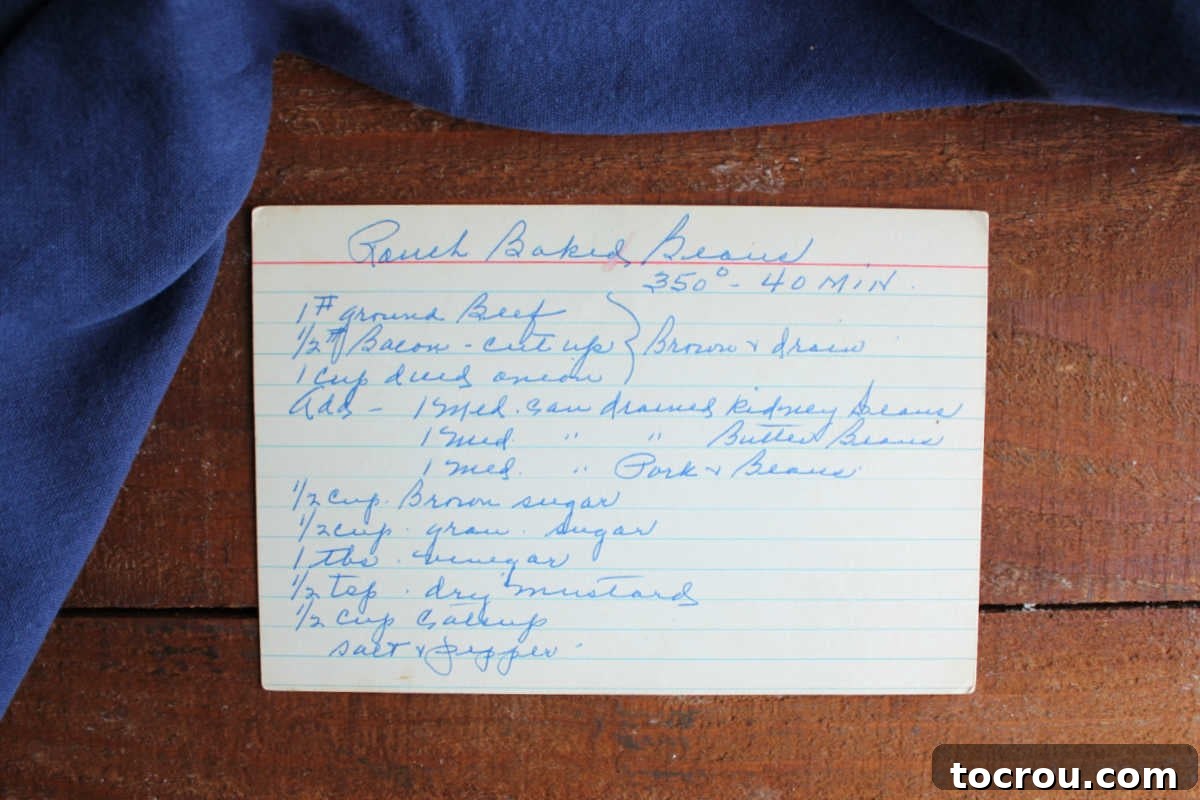 Ranch Baked Beans
350° - 40 MIN.
1# ground Beef
1/2# Bacon - cut up } Brown & drain
1 cup diced onion
Add - 1 Med. Can drained Kidney Beans
1 Med. " " Butter Beans
1 Med. " Pork & Beans
1/2 cup. Brown sugar
1/2 cup. gran. sugar
1 tbs. vinegar
1/2 tsp. dry mustard
1/2 cup Catsup
salt & pepper
tocrou.com